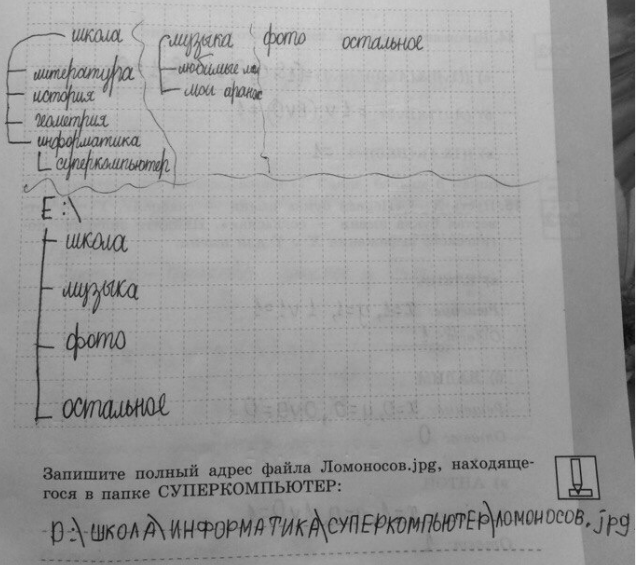 школа музыка фото остальное
литература любимые
история мои
геометрия
информатика
суперкомпьютер
E:\
школа
музыка
фото
остальное
Запишите полный адрес файла Ломоносов.jpg, находяще-
гося в папке СУПЕРКОМПЬЮТЕР:
D:\ШКОЛА\ИНФОРМАТИКА\СУПЕРКОМПЬЮТЕР\ЛОМОНОСОВ.jpg